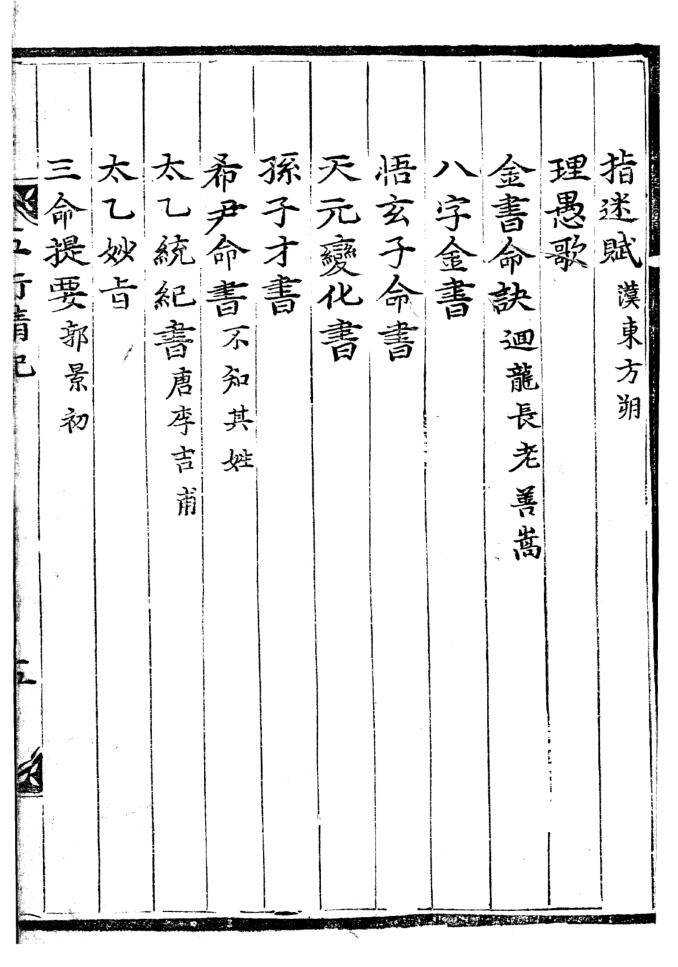 指迷賦 漢東方朔
理愚歌
金書命訣 迴龍長老善嵩
八字金書
悟玄子命書
天元變化書
孫子才書
希尹命書 不知其姓
太乙統紀書 唐李吉甫
太乙妙旨
三命提要 郭景初
五行精紀
五